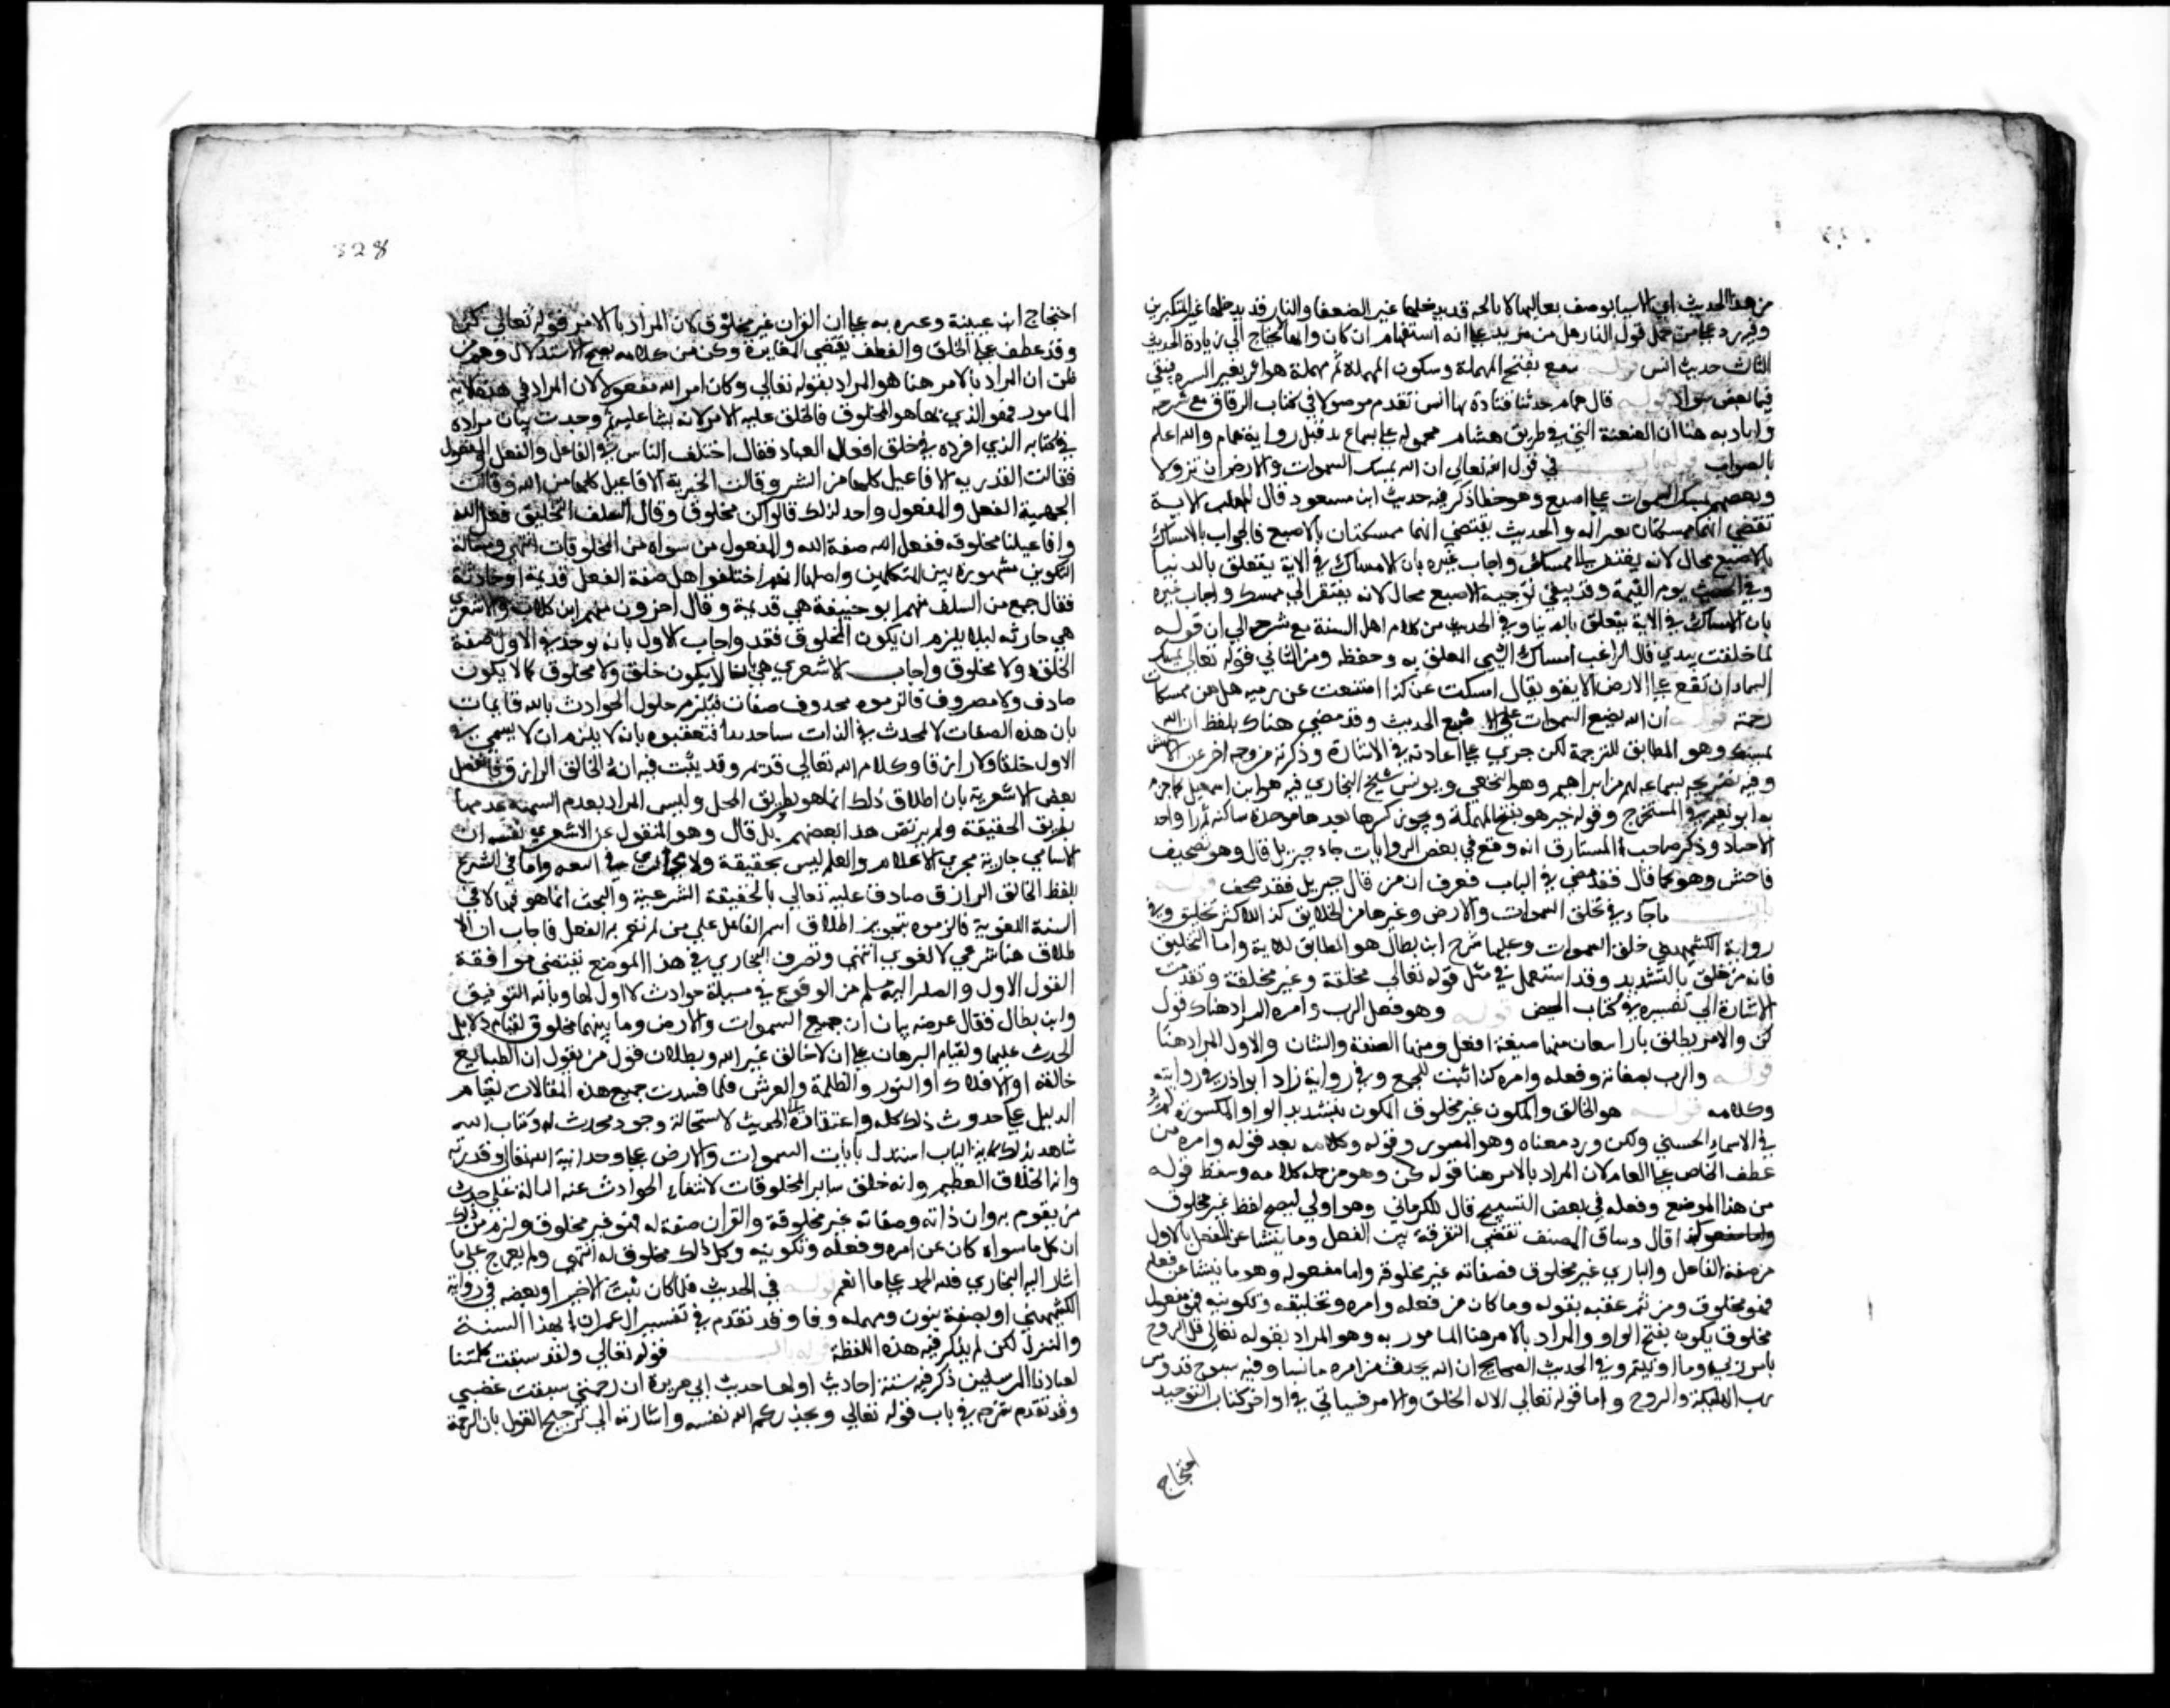 من هذا الحديث ان الاسبا بوصف بعاليها لا بالجه قد يدخلها غير الضعفا والنار قد يدخلها غير المتكبرين
وفيه رد علي من حمل قول النار هل من مزيد علي انه استفهام انكار وانها لا تحتاج الي زيادة الحديث
الثالث حديث انس قوله سفع بفتح المهملة وسكون المهملة ثم مهملة هو اثر تغير البشره فيبقي
فيها بعض سواد قوله قال همام حدثنا قتادة ثنا انس تقدم موصولا في كتاب الرقاق مع شرحه
واراد به هنا ان العنعنة التي في طريق هشام محمولة علي السماع بدليل رواية همام والله اعلم
بالصواب قوله باب في قول الله تعالي ان الله يمسك السموات والارض ان تزولا
وبعضهم يمسك السموات علي اصبع وهو خطا ذكر فيه حديث ابن مسعود قال المهلب الاية
تقتضي انهما ممسكتان بغير اله والحديث يقتضي انهما ممسكتان بالاصبع فالجواب بالامساك
بالاصبع محال لانه يفتقر الي ممسك واجاب غيره بان الامساك في الاية يتعلق بالدنيا
وفي الحديث يوم القيمة وقد يبقي توجيه الاصبع محال لانه يفتقر الي ممسك واجاب غيره
بان الامساك في الاية يتعلق بالدنيا وفي الحديث من كلام اهل السنة مع شرحه الي ان قوله
لما خلقت بيدي قال الراغب امساك الشي التعلق به وحفظه ومن الثاني قوله تعالي يمسك
السماء ان تقع علي الارض الاية ويقال امسكت عن كذا امتنعت عنه ومنه هل هن ممسكات
رحمته قوله ان الله يضع السموات علي اصبع الحديث وقد مضي هناك بلفظ ان الله
يمسك وهو المطابق للترجمة لكن جري علي عادته في الاشارة وذكره من وجه اخر عن الاعمش
وفيه تصريحه بسماعه له من ابراهيم وهو النخعي وموسي شيخ البخاري فيه هو ابن اسمعيل كما جزم
به ابو نعيم في المستخرج وقوله حبر هو بفتح المهملة ويجوز كسرها بعدها موحدة ساكنة ثم را واحد
الاحبار وذكر صاحب المشارق انه وقع في بعض الروايات جاء جبريل قال وهو تصحيف
فاحش وهو كما قال فقد مضي في الباب فعرف ان من قال جبريل فقد صحف قوله
باب ما جاء في تخلق السموات والارض وغيرها من الخلايق كذا للاكثر تخليق وفي
رواية الكشميهني خلق السموات وعليها شرح ابن بطال هو المطابق للاية واما التخليق
فانه من خلق بالتشديد وقد استعمل في مثل قوله تعالي مخلقة وغير مخلقة وتقدمت
الاشارة الي تفسيره في كتاب الحيض قوله وهو فعل الرب وامره المراد هناك قول
كن والامر يطلق بازا معان منها صيغة افعل ومنها الصفة والشان والاول المراد هنا
قوله والرب بصفاته وفعله وامره كذا ثبت للجميع وفي رواية زاد ابو اذر في روايته
وكلامه قوله هو الخالق والمكون غير مخلوق المكون بتشديد الواو المكسورة لم يرد
في الاسماء الحسني ولكن ورد معناه وهو المصور وقوله وكلامه بعد قوله وامره من
عطف الخاص علي العام لان المراد بالامر هنا قوله كن وهو من جملة كلامه وسقط قوله
من هذا الموضع وفعله في بعض النسخ قال الكرماني وهو اولي ليصح لفظ غير مخلوق
كذا قال وساق المصنف تقتضي التفرقة بين الفعل وما ينشا عن الفعل بالاول
من صفة الفاعل والباري غير مخلوق فصفاته غير مخلوقة واما مفعوله وهو ما ينشا عن فعله
فهو مخلوق ومن ثم عقبه بقوله وما كان من فعله وامره وتخليقه وتكوينه فهو مفعول
مخلوق يكون بفتح الواو والمراد بالامر هنا المامور به وهو المراد بقوله تعالي قل الروح
من امر ربي وما اوتيتم وفي الحديث الصحيح ان الله يحدث من امره ما شا وفيه سبوح قدوس
رب الملايكة والروح واما قوله تعالي الا له الخلق والامر فسياتي في اواخر كتاب التوحيد
احتجاج
328
احتجاج ابن عيينة وغيره به علي ان القران غير مخلوق لان المراد بالامر قوله تعالي كن
وقد عطف علي الخلق والعطف يقتضي المغايرة وكن من كلامه فصح الاستدلال وهم من
ظن ان المراد بالامر هنا هو المراد بقوله تعالي وكان امر الله مفعولا لان المراد في هذه الاية
المامور فهو الذي
في كتابه الذي افرده في خلق افعال العباد فقال اختلف الناس في الفاعل والفعل والمفعول
فقالت القدرية الافاعيل كلها من البشر وقالت الجبرية الافاعيل كلها من الله وقالت
الجهمية الفعل والمفعول واحد لذلك قالوا كن مخلوق وقال السلف التخليق فعل الله
وافاعيلنا مخلوقه ففعل الله صفة الله والمفعول من سواه من المخلوقات انتهي ومسالة
التكوين مشهورة بين المتكلمين واصلها انهم اختلفوا هل صفة الفعل قديمة او حادثة
فقال جمع من السلف منهم ابو حنيفة هي قديمة وقال اخرون منهم ابن كلاب والاشعري
هي حادثة ليلا يلزم ان يكون المخلوق قديما واجاب الاول بانه يوجد في الاول صفة
الخلق ولا مخلوق واجاب الاشعري بانه لا يكون خلق ولا مخلوق كما لا يكون
ضارب ولا مضروب فالزموه بحدوث صفات فيلزم حلول الحوادث بالله فاجاب
بان هذه الصفات لا تحدث في الذات شيا جديدا فتعقبوه بانه يلزم ان لا يسمي في
الاول خالقا ولا رازقا وكلام الله تعالي قديم وقد ثبت فيه انه الخالق الرازق فانفصل
بعض الاشعرية بان اطلاق ذلك انما هو بطريق المجاز وليس المراد بعدم التسمية عدمها
بطريق الحقيقة ولم يرتض هذا بعضهم بل قال وهو المنقول عن الاشعري نفسه ان
الاسامي جارية مجري الاعلام والعلم ليس بحقيقة ولا مجاز في اللغه واما في الشرع
بلفظ الخالق الرازق صادق عليه تعالي بالحقيقة الشرعية والبحث انما هو فيها لا في
السنة اللغوية فالزموه بتجويز اطلاق اسم الفاعل علي من لم يقم به الفعل فاجاب ان الا
طلاق هنا شرعي لا لغوي انتهي وتصرف البخاري في هذا الموضع يقتضي موافقة
القول الاول والصاير اليه يسلم من الوقوع في مسيلة حوادث لا اول لها وبالله التوفيق
وابن بطال فقال غرضه بيان ان جميع السموات والارض وما بينهما مخلوق لقيام دلايل
الحدث عليها ولقيام البرهان علي ان لا خالق غير الله وبطلان قول من يقول ان الطبايع
خالقه او الافلاك او النور والظلمة والعرش فلما فسدت جميع هذه المقالات لقيام
الدليل علي حدوث ذلك كله واعتقاره الي محدث لاستحالة وجود محدث له وكتاب الله
شاهد بذلك كاية الباب استدل بايات السموات والارض علي وحدانية الله تعالي وقدرته
وانه الخلاق العظيم وانه خالق ساير المخلوقات لانتفاء الحوادث عنه الدالة علي حدث
من يقوم به وان ذاته وصفاته غير مخلوقة والقران صفة له فهو غير مخلوق ولزم من ذلك
ان كل ما سواه كان عن امره وفعله وتكوينه وكل ذلك مخلوق له انتهي ولم يعرج علي ما
اشار اليه البخاري فلله الحمد علي ما انعم قوله في الحديث فلما كان ثلث الاخير او بعضه في رواية
الكشميهني او نصفه بنون ومهملة وفا وقد تقدم في تفسير ال عمران بهذا السند
والمتن لكن لم يذكر فيه هذه اللفظة قوله باب قوله تعالي ولقد سبقت كلمتنا
لعبادنا المرسلين ذكر فيه ستة احاديث اولها حديث ابي هريرة ان رحمتي سبقت غضبي
وقد تقدم شرحه في باب قوله تعالي ويحذركم الله نفسه واشار به الي ترجيح القول بان الرحمة